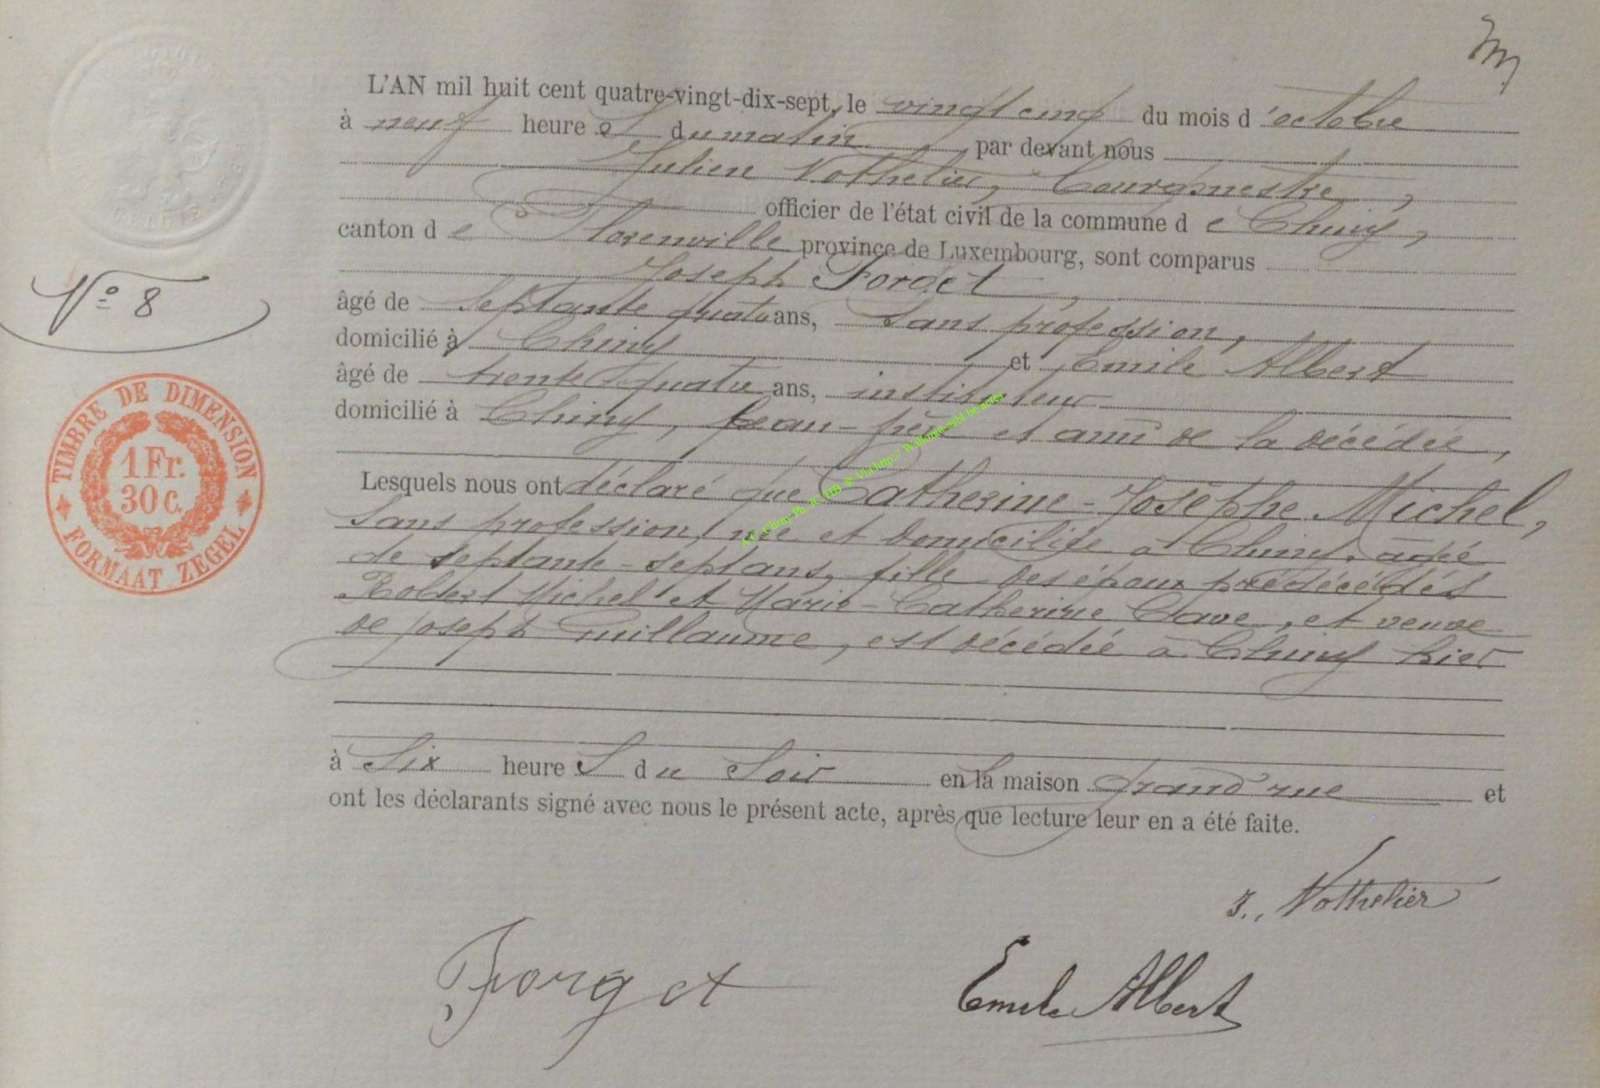 L'AN mil huit cent quatre-vingt-dix-sept, le vingt cinq du mois d'octobre
à neuf heures du matin par devant nous
Julien Nothelier, Bourgmestre,
officier de l'état civil de la commune de Chiny,
canton de Florenville province de Luxembourg, sont comparus
Joseph Forget,
âgé de septante quatre ans, sans profession,
domicilié à Chiny et Emile Albert
âgé de trente quatre ans, instituteur
domicilié à Chiny, beau-frère et ami de la décédée,
Lesquels nous ont déclaré que Catherine-Josèphe Michel,
sans profession, née et domiciliée à Chiny, âgée
de septante-sept ans, fille des époux prédécédés
Robert Michel et Marie-Catherine Clave, et veuve
de Joseph Guillaume, est décédée à Chiny hier
à six heures du soir en la maison grand'rue et
ont les déclarants signé avec nous le présent acte, après que lecture leur en a été faite.
N° 8
TIMBRE DE DIMENSION
1 Fr.
30 C.
FORMAAT ZEGEL
J. Nothelier
Forget
Emile Albert